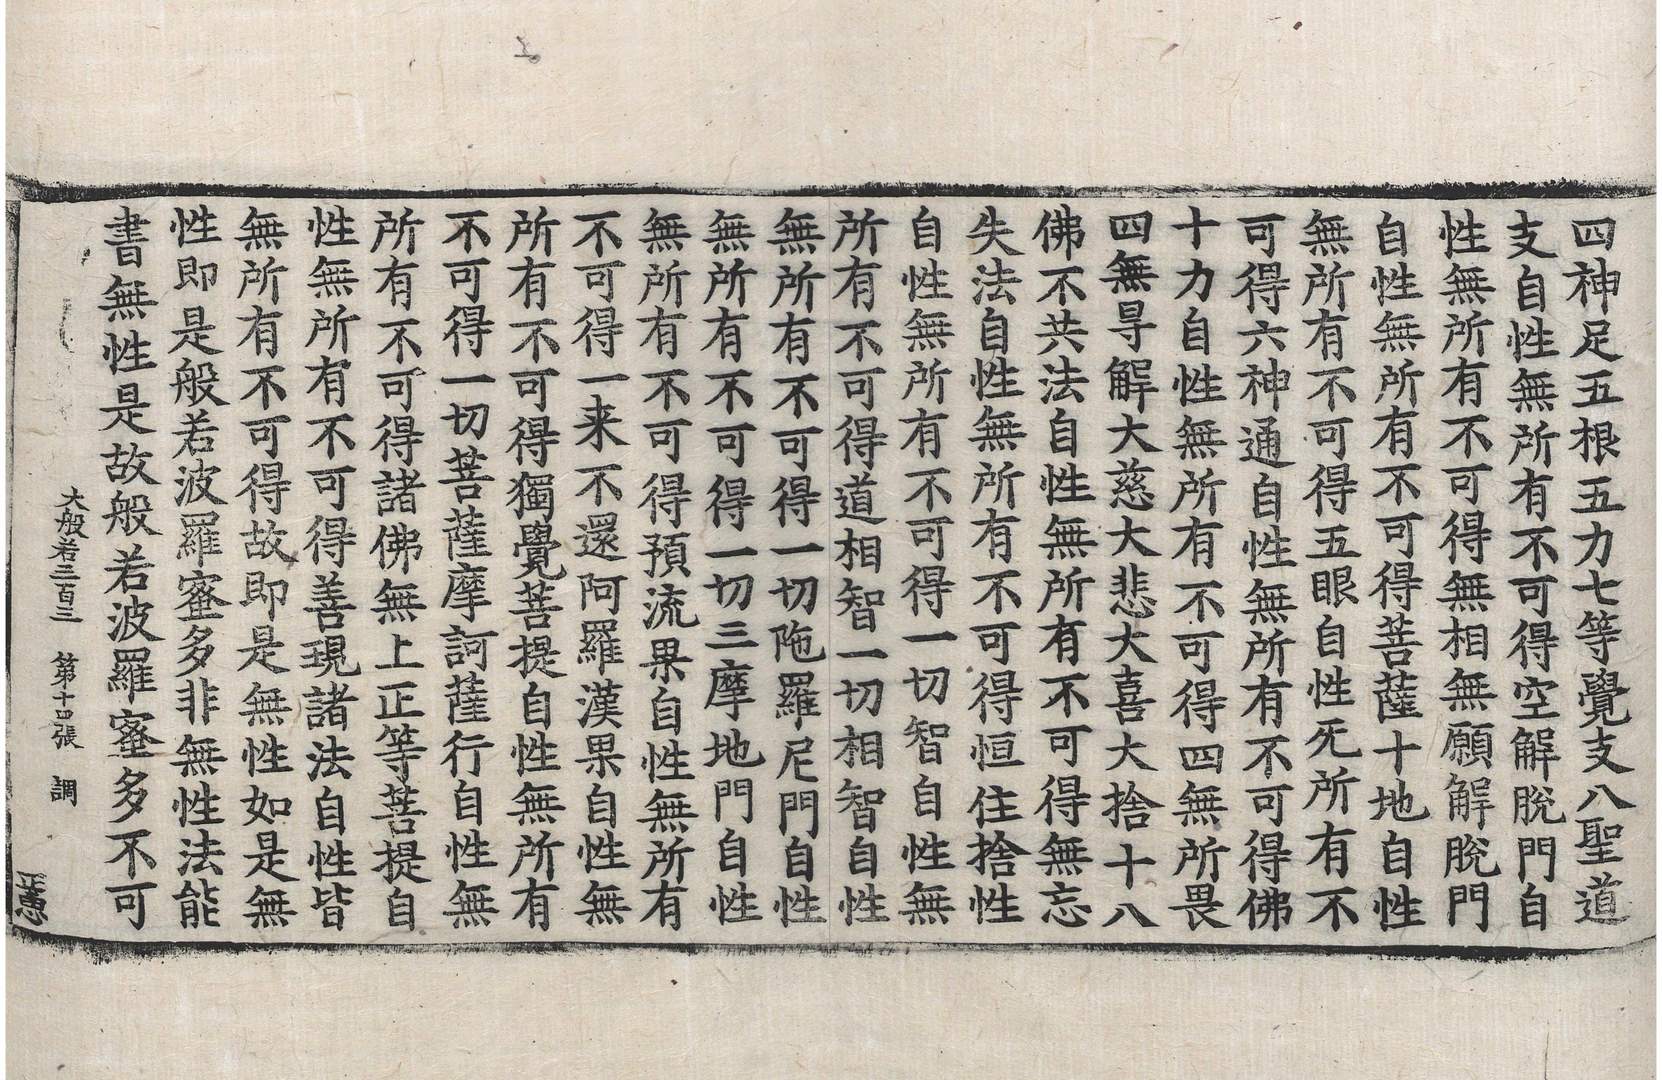 四神足五根五力七等覺支八聖道
支自性無所有不可得空解脫門自
性無所有不可得無相無願解脫門
自性無所有不可得菩薩十地自性
無所有不可得五眼自性无所有不
可得六神通自性無所有不可得佛
十力自性無所有不可得四無所畏
四無㝵解大慈大悲大喜大捨十八
佛不共法自性無所有不可得無忘
失法自性無所有不可得恒住捨性
自性無所有不可得一切智自性無
所有不可得道相智一切相智自性
無所有不可得一切陁羅尼門自性
無所有不可得一切三摩地門自性
無所有不可得預流果自性無所有
不可得一来不還阿羅漢果自性無
所有不可得獨覺菩提自性無所有
不可得一切菩薩摩訶薩行自性無
所有不可得諸佛無上正等菩提自
性無所有不可得善現諸法自性皆
無所有不可得故即是無性如是無
性即是般若波羅蜜多非無性法能
書無性是故般若波羅蜜多不可
大般若三百三 第十四張 調